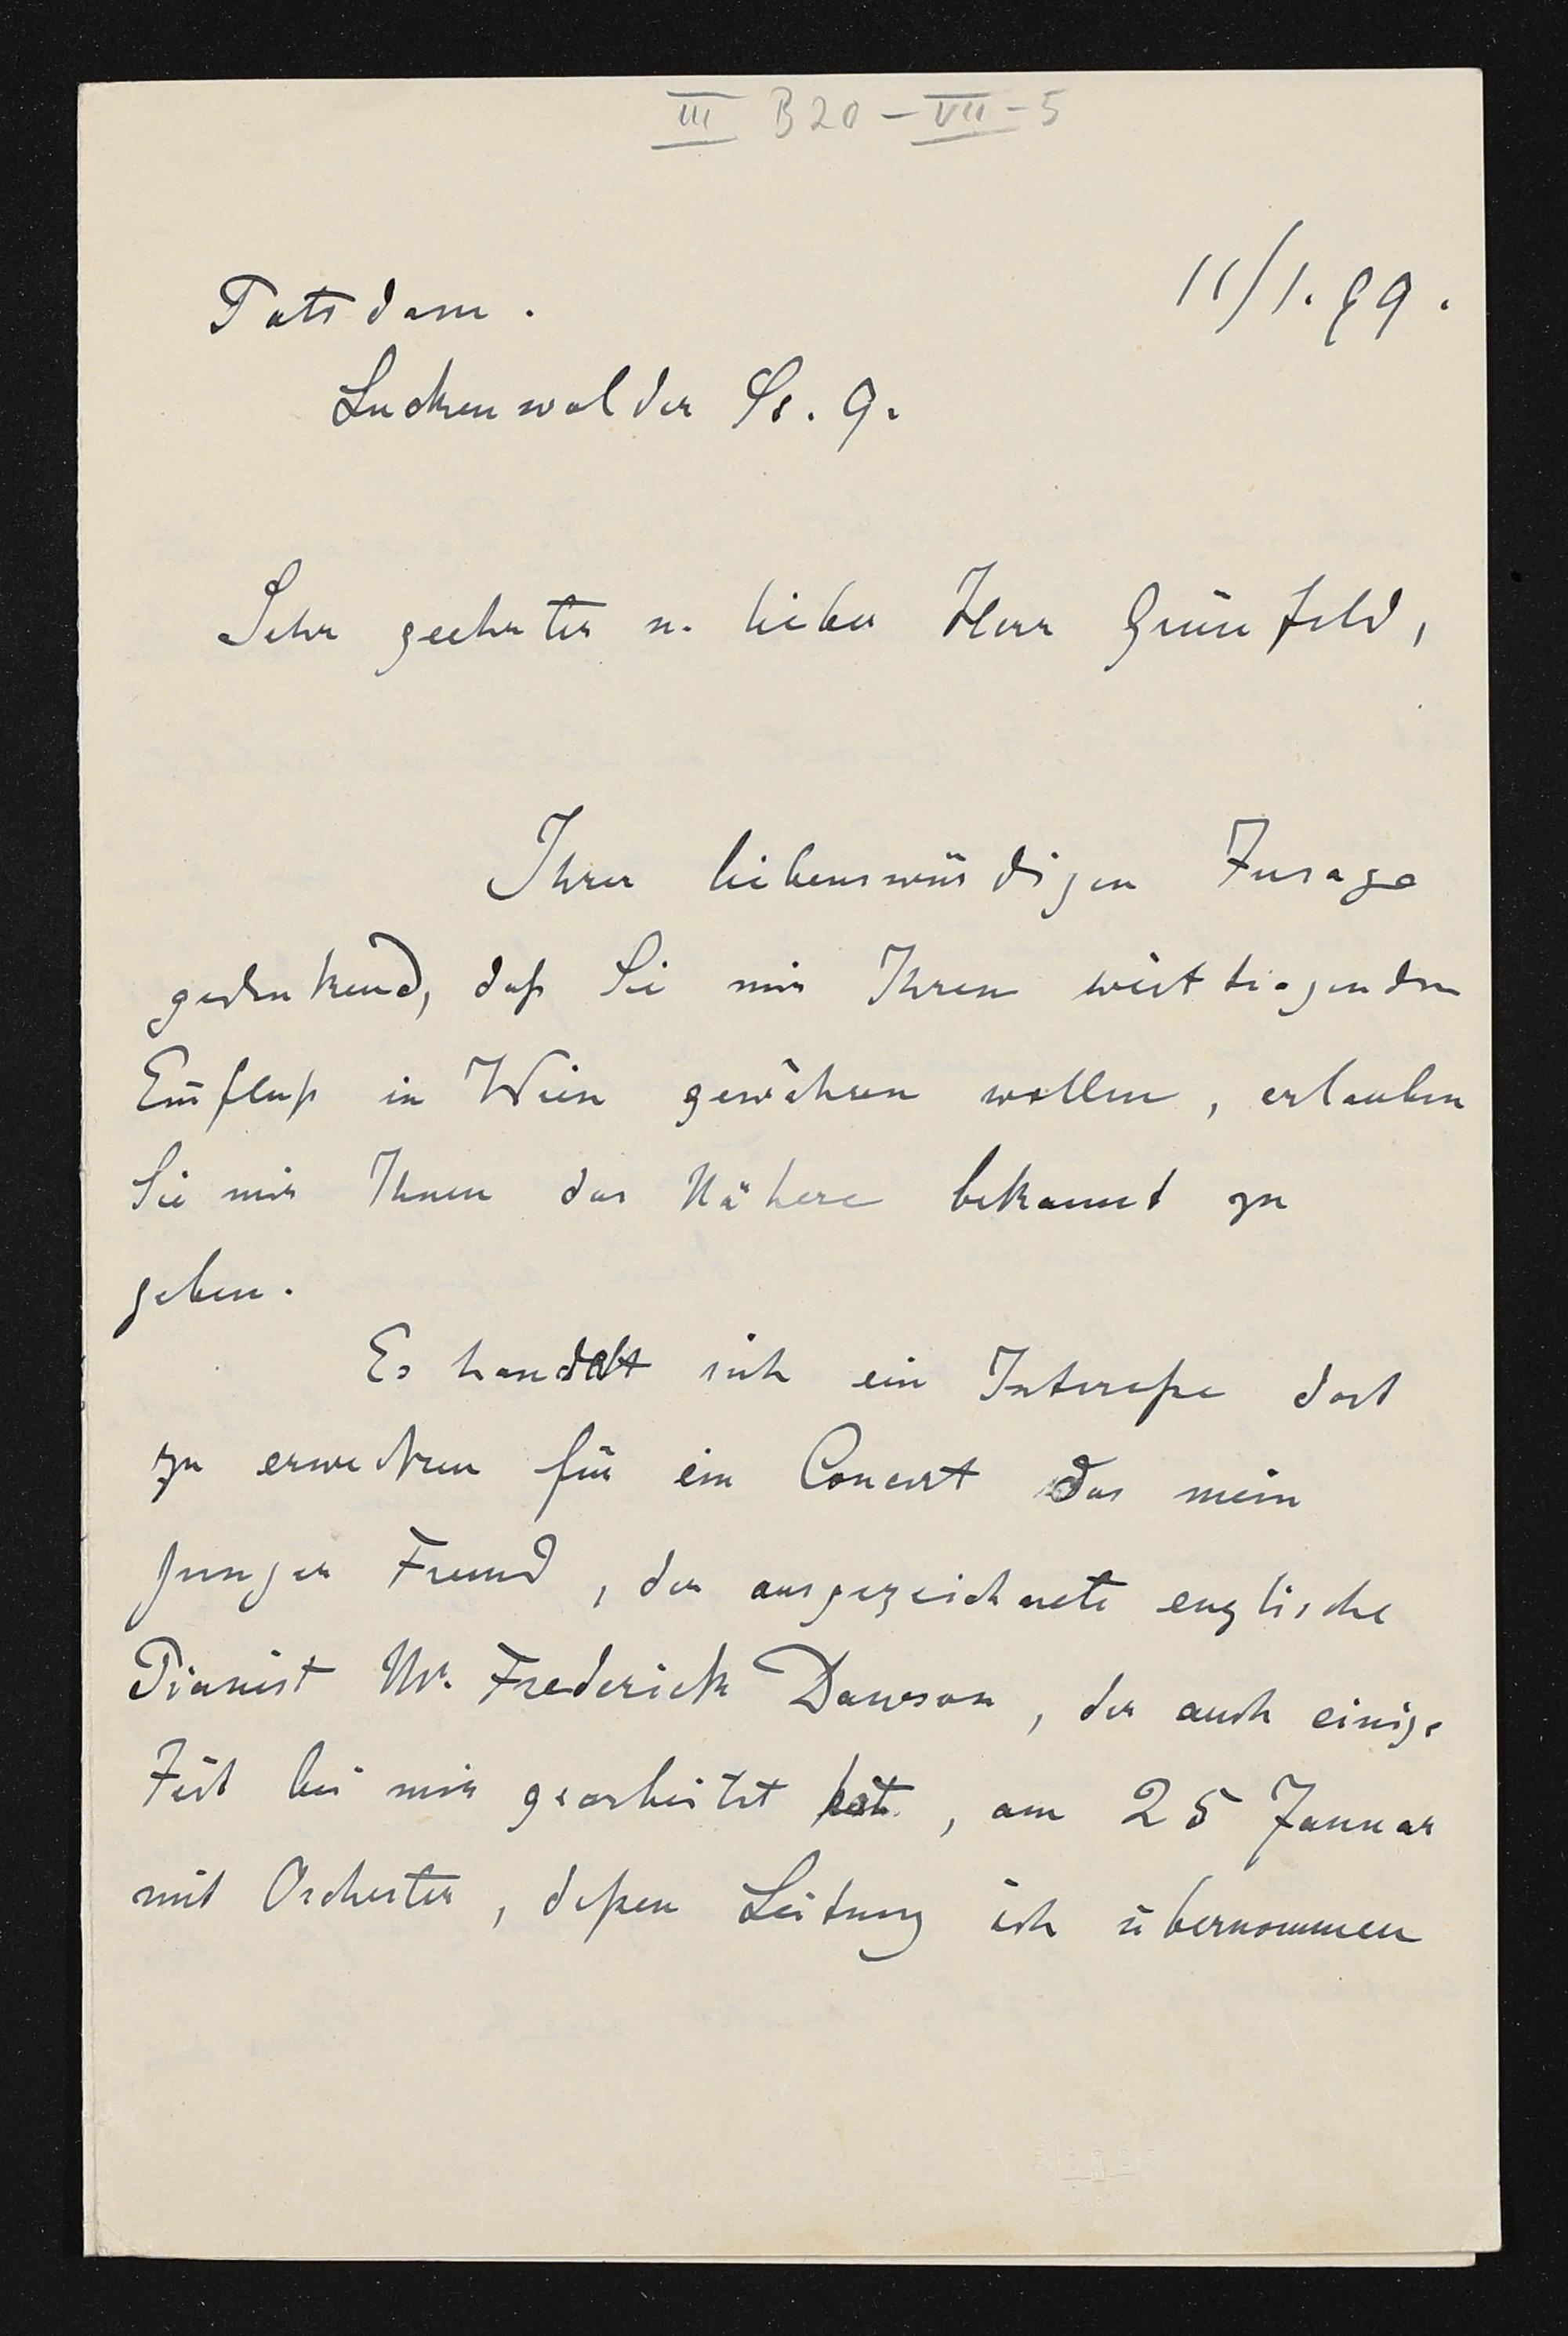 III B20-VII-5
11/1.99.
Potsdam.
Luckenwalder St. 9.
Sehr geehrter u. lieber Herr Grünfeld,
Ihrer liebenswürdigen Zusage
gedenkend, daß Sie mir Ihren weittragenden
Einfluß in Wien gewähren wollen, erlauben
Sie mir Ihnen das Nähere bekannt zu
geben.
Es handelt sich ein Intereße dort
zu erwecken für ein Concert das mein
junger Freund, der ausgezeichnete englische
Pianist Mr. Frederick Dawson, der auch einige
Zeit bei mir gearbeitet hat, am 25 Januar
mit Orchester, deßen Leitung ich übernommen